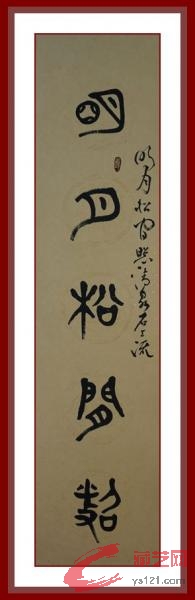 明月松間照
明月松間照清泉石上流
藏艺网
ys121.com